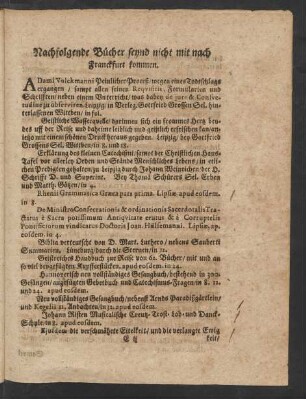 Nachfolgende Bücher seynd nicht mit nach
Franckfurt kommen.
ADami Volckmanni Peinlicher Process wegen eines Todtschlags
ergangen / sampt allen seinen Requisitis, Formularien und
Schrifften neben einem Unterricht was dabey de jure & Consve-
tudine zu observiren Leipzig in Verleg. Gottfried Grossen Sel. hin-
terlassenen Witben / in ful.
Geistliche Wasserquelle darinnen sich ein frommes Hertz bey-
des uff der Reise und daheime leiblich und geistlich erfrischen kan/an-
jetzo mit einem schönen Druck heraus gegeben. Leipzig bey Gottfried
Grossens Sel. Witben/in 8. und 12.
Erklärung des kleinen Catechismi samt der Christlichen Haus-
Tafel vor allerley Orden und Stände Menschliches Lebens / in etli-
chen Predigten gehalten/zu Leipzig durch Johann Mülmännen der H.
Schrifft D. und Superint. Bey Thomæ Schürers Sel. Erben
und Matth. Götzen/in 4.
Rhenii Grammatica Græca pars prima. Lipsiæ apud eosdem.
in 8.
De Ministro Consecrationis & ordinationis Sacerdotalis Tra-
ctatus è Sacræ potissimum Antiqvitate erutus & à Corruptelis
Pontificiorum vindicatus Doctoris Joan. Hülsemanni. Lipsiæ, ap.
eosdem. in 4.
Biblia verteutscht von D. Mart. Luthero / nebenst Sauberti
Summarien / Lüneburg durch die Sternen/in 12.
Geistreiches Handbuch zur Reise von 62. Bücher / mit und an
so viel beygefügten Kupfferstücken, apud eosdem. in 24.
Hannoverisch neu vollständiges Gesangbuch / bestehend in 300.
Gesängen / angefügten Gebetbuch und Catechismus-Fragen/in 8. 12.
und 24. apud eosdem.
New vollständiges Gesangbuch/nebenst Arnds Paradißgärtlein/
und Kegelii 12. Andachten/in 12. apud eosdem.
Johann Risten Musicalische Creutz-Trost- Lob- und Danck-
Schule/in 8. apud eosdem.
Ejusdem die verschmähete Eitelkeit / und die verlangte Ewig
E ij keit/